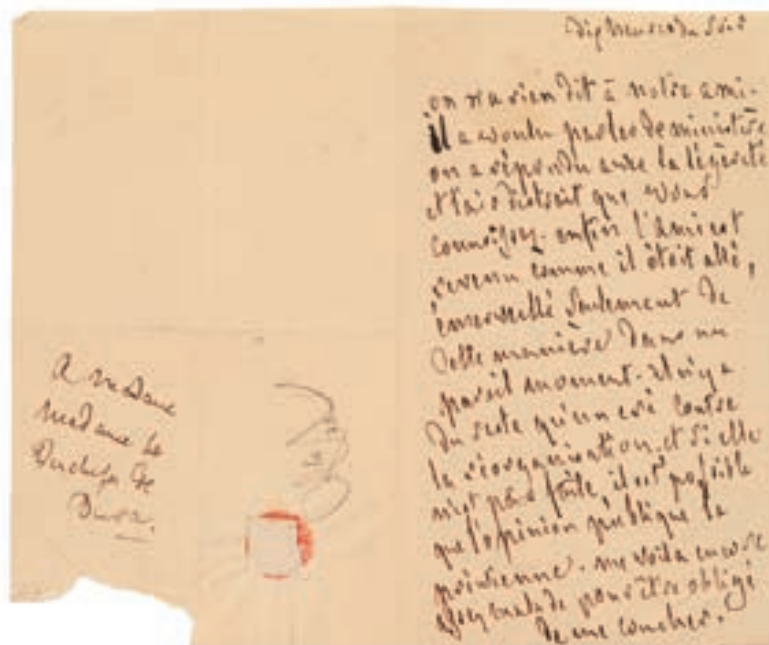 dix heures du soir
on n'a rien dit à notre ami.
il a voulu parler de ministère
on a répondu avec la légèreté
et l'air distrait que vous
connoissez. enfin l'ami est
revenu comme il étoit allé,
émerveillé seulement de
cette manière dans un
pareil moment. il n'y a
du reste qu'un cri contre
la réorganisation. et si elle
n'est pas faite, il est possible
que l'opinion publique la
prévienne. me voilà encore
assez malade pour être obligé
de me coucher.
A Madame
Madame la
Duchesse de
Duras